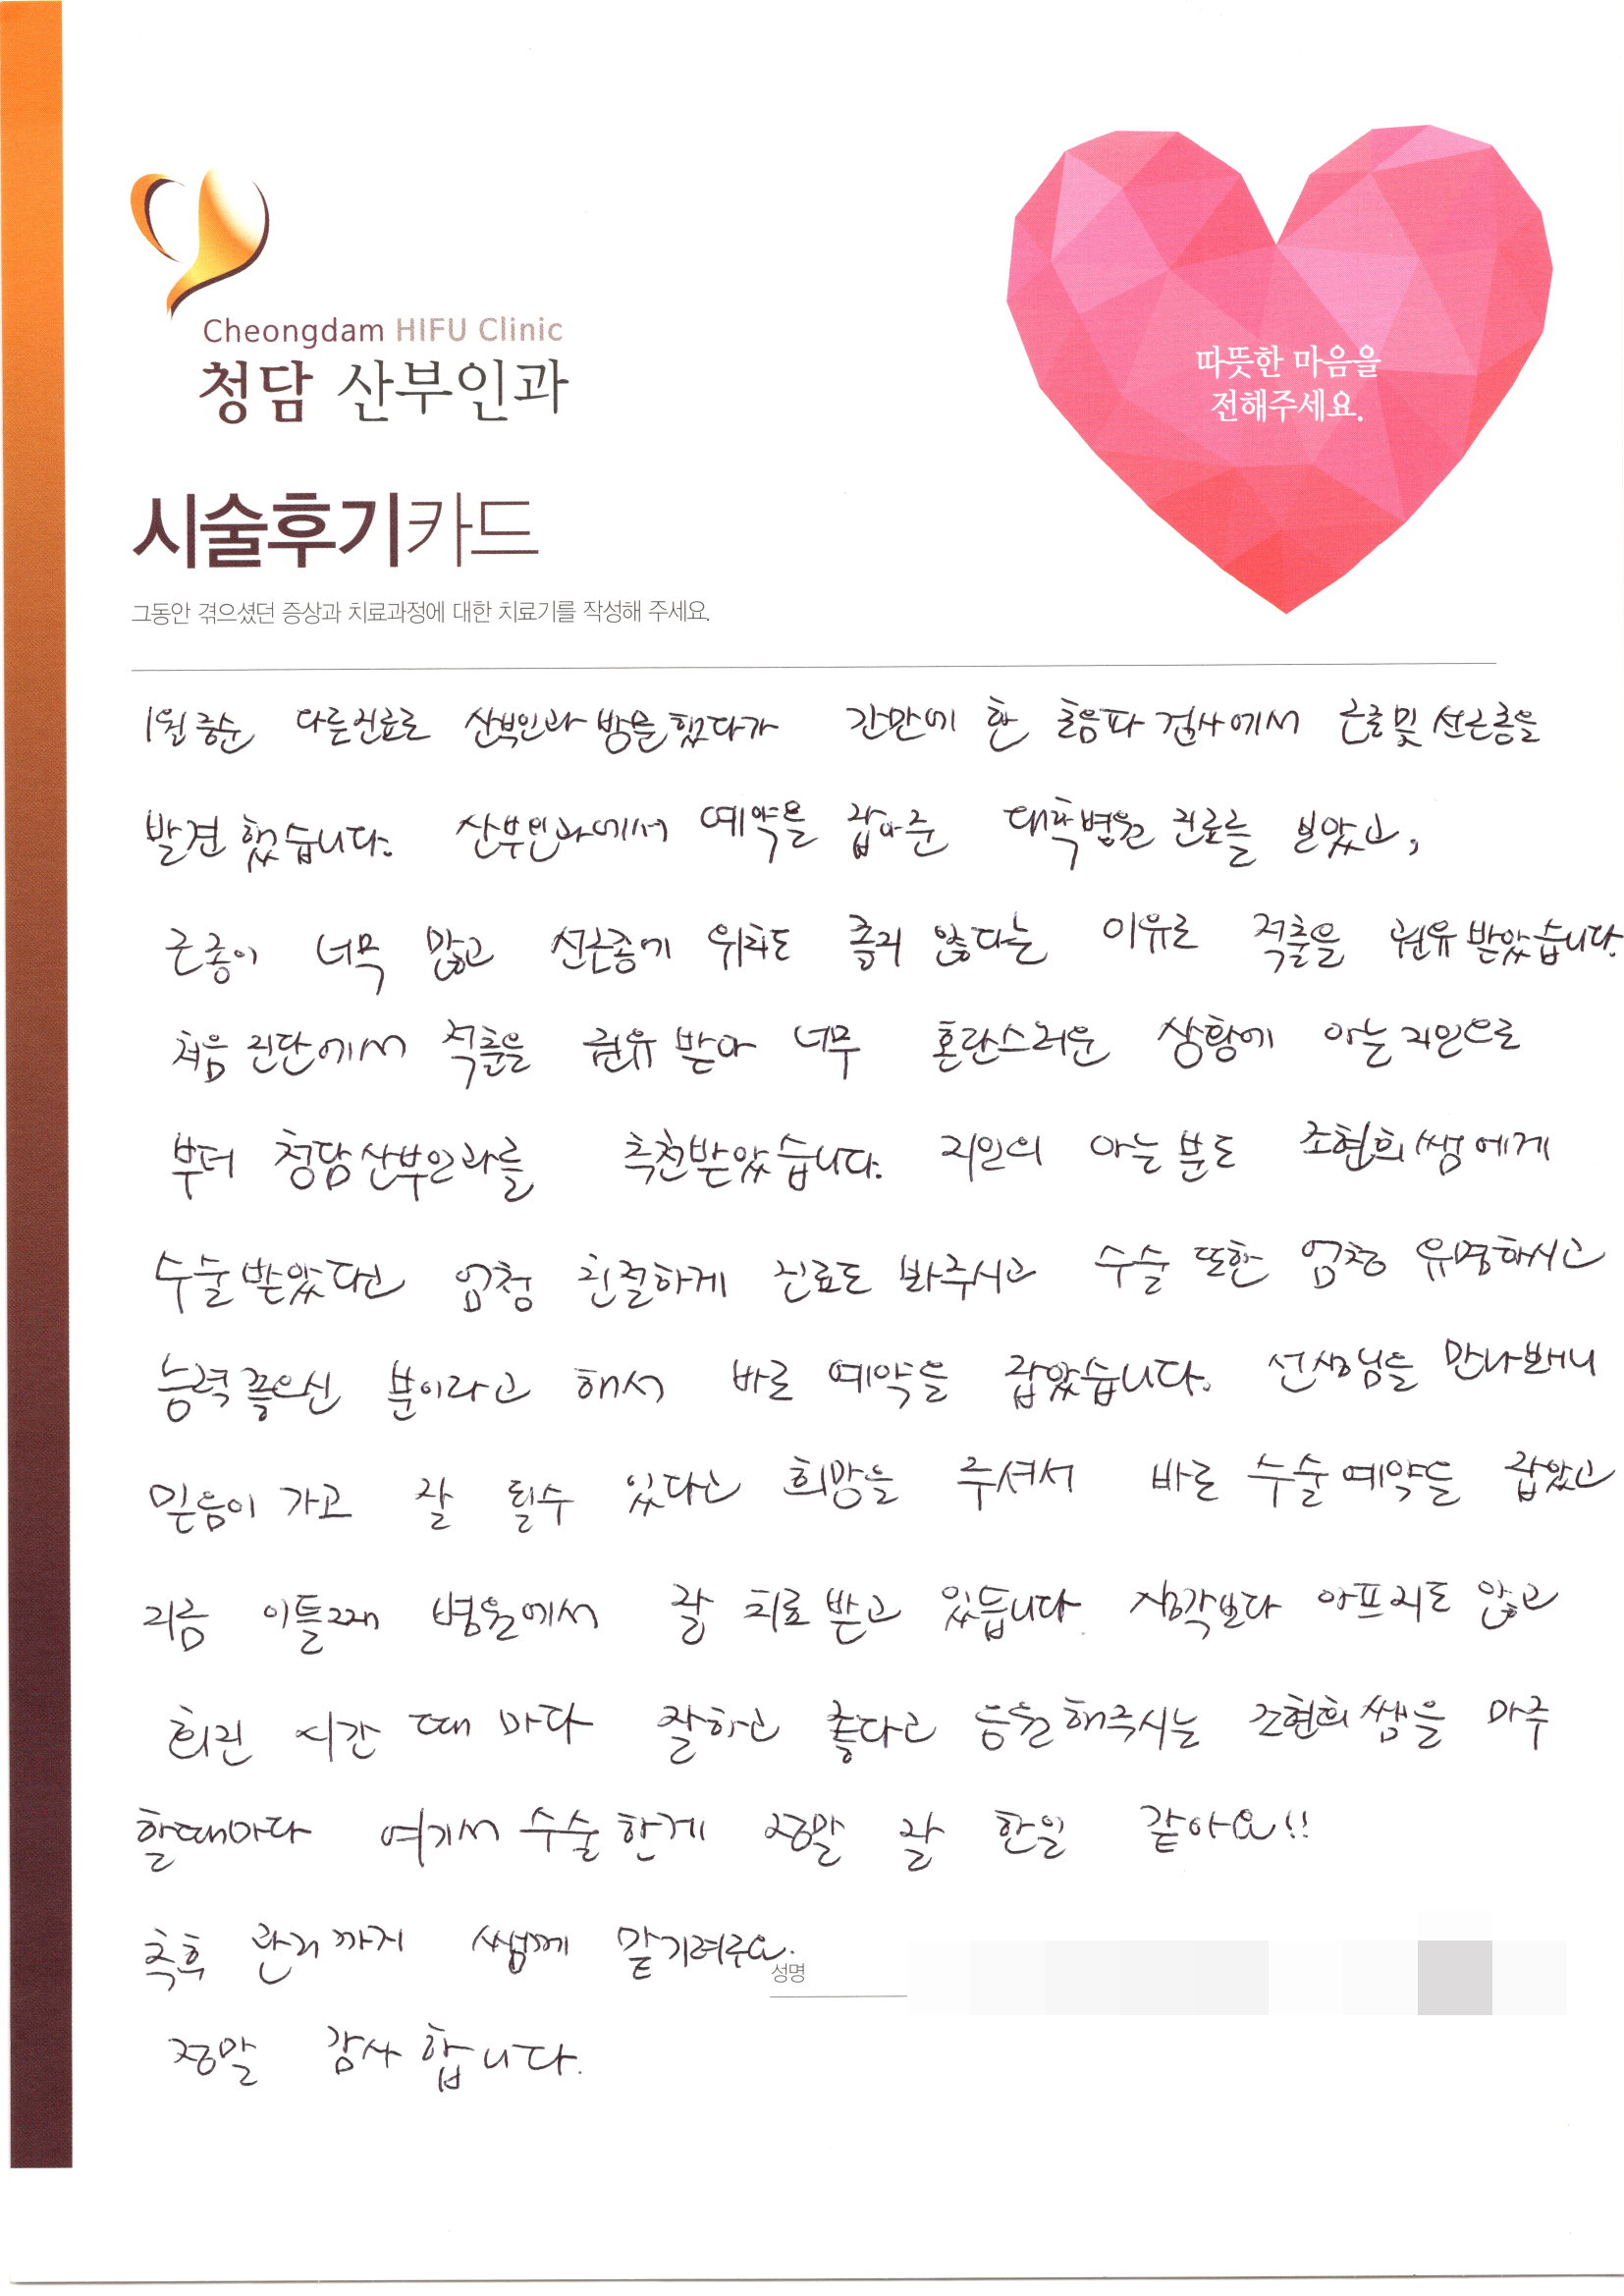 Cheongdam HIFU Clinic
청담 산부인과
따뜻한 마음을
전해주세요.
시술후기카드
그동안 겪으셨던 증상과 치료과정에 대한 치료기를 작성해 주세요.
1월 중순 다른진료로 산부인과 방문했다가 간만에 한 초음파 검사에서 근종및 선근종을
발견했습니다. 산부인과에서 예약을 잡아준 대학병원 진료를 보았고,
근종이 너무 많고 선근종에 위치도 좋지 않다는 이유로 적출을 권유받았습니다.
처음 진단에서 적출을 권유 받아 너무 혼란스러운 상황에 아는 지인으로
부터 청담산부인과를 추천받았습니다. 지인의 아는 분도 조현희쌤에게
수술받았다고 엄청 친절하게 진료도 봐주시고 수술 또한 엄청 유명하시고
능력좋으신 분이라고 해서 바로 예약을 잡았습니다. 선생님을 만나뵈니
믿음이 가고 잘 될수 있다고 희망을 주셔서 바로 수술예약을 잡았고
지금 이틀째 병원에서 잘 치료받고 있습니다. 생각보다 아프지도 않고
회진 시간 때 마다 잘하고 좋다고 응원해주시는 조현희쌤을 마주
할때마다 여기서 수술한게 정말 잘 한일 같아요!!
추후 관리까지 쌤께 맡기려구요.
성명
정말 감사합니다.